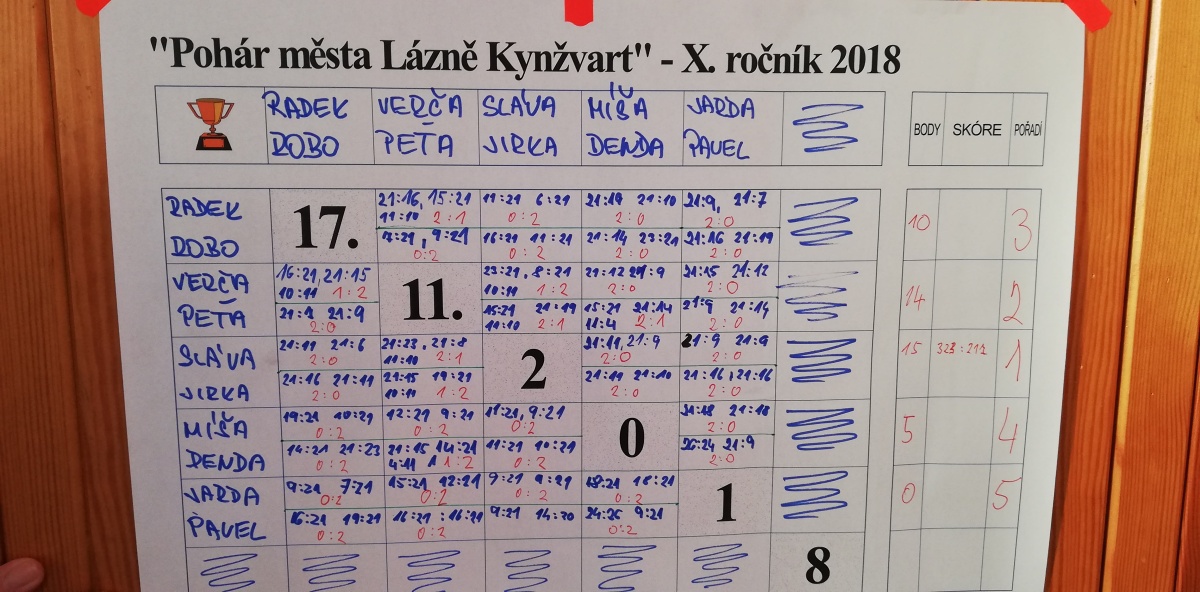 "Pohár města Lázně Kynžvart" - X. ročník 2018
RADEK VERČA SLÁVA MÍŠA JARDA
ROBO PEŤA JIRKA DENDA PAVEL
BODY SKÓRE POŘADÍ
RADEK 21:16, 15:21 11:21 6:21 21:19 21:10 21:9, 21:7
17. 11:10 2:1 0:2 2:0 2:0 10 3
ROBO 9:21 16:21 11:21 21:14 23:21 21:16 21:19
0:2 0:2 2:0 2:0
VERČA 16:21, 21:15 23:21, 8:21 21:12 21:9 21:15 21:12
10:11 1:2 11. 10:11 1:2 2:0 2:0 14 2
PEŤA 21:9 15:21 21:19 15:21 21:14 21:9 21:14
2:0 11:10 2:1 11:4 2:1 2:0
SLÁVA 21:11 21:6 21:23, 21:8 21:11, 21:9 21:9 21:9
2:0 11:10 2:1 2 2:0 2:0 15 1
JIRKA 21:16 21:11 21:15 19:21 21:11 21:10 21:16, 21:16
2:0 10:11 1:2 2:0 2:0
MÍŠA 19:21 10:21 12:21 9:21 11:21, 9:21 21:18
0:2 0:2 0:2 0 2:0 5 4
DENDA 14:21 21:23 21:15 14:21 11:21 10:21 21:9
0:2 4:11 1:2 0:2 2:0
JARDA 9:21 7:21 15:21 12:21 9:21 9:21 18:21
0:2 0:2 0:2 0:2 1 0 5
PAVEL 16:21 19:21 16:21 : 16:21 9:21 24:26 9:21
0:2 0:2 0:2
8